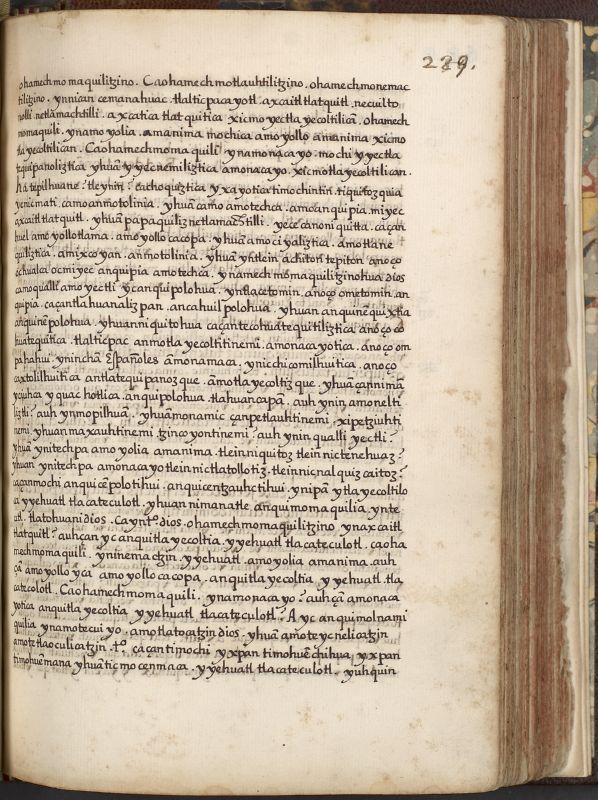 289.
ohamechmomaquilitzino. Caohamechmotlauhtilitzino. ohamechmonemac
tilitzino. ynnican cemanahuac. tlalticpacayotl. axcaitl tlatquitl. necuilto
nolli. netlamachtilli. axcatica tlatquitica xicmo yectlayecoltilicā. ohamech
momaquili. ynamo yolia. amanima. mochica amo yollo amanima xicmo
tlayecoltilican. Caohamechmomaquili ynamonacayo. mochi yyectla
tequipanoliztica yhuā yyecnemiliztica amonacayo. xicmotlayecoltilican.
tepilhuane. tleyhin? cachoquiztica yxayotica timochintin. tiquitozquia
yenicmati. camo anmotolinia. yhuā camo amotechca. amo anquipia. miyec
axcaitl tlatquitl. yhuā papaquiliz netlamachtilli. yece canoniquitta. caçan
huel amo yollotlama. amo yollocacopa. yhuā amociyaliztica. amotlane
quiliztica. amixcoyan. anmotolinia. yhuā yntlein achiton tepiton anoço
ochualca ocmiyec anquipia amotechca. ynamechmomaquilitzinohua dios
camoqualli amo yectli ycanquipolohua. yntlacetomin. anoço ometomin. an
quipia. caçantlahuanalizpan. ancahuilpolohua. yhuan anquinēquixtia
anquinēpolohua. yhuanniquitohua caçantecohuatequitiliztica anoço co
huatequitica. tlalticpac anmotlayecoltitinemi. amonacayotica. anoço om
pahahui ynincha Españoles amonamaca. ynicchicomilhuitica. anoço
caxtolilhuitica antlatequipanozque. āmotlayecoltizque. yhuā çanniman
ycuhca yquac hotlica. anquipolohua tlahuancapā. auh ynin amonelti
liztli? auh ynmopilhuā. yhuā monamic çanpetlauhtinemi. xipetziuhti
nemi. yhuan maxauhtinemi. tzincoyontinemi. auh ynin qualli yectli?
yhuā ynitechpa amo yolia amanima. tleinniquitoz tleinnictenehuaz?
yhuan ynitechpa amonacayo tleinnictlatollotiz. tleinnicnalquizcaitoz?
caçanmochi anquicēpolotihui. anquicentzauhctihui. ynipā ytlayecoltilo
ca yyehuatl tlacateculotl. yhuan nimanatle. anquimomaquilia ynte
utl. tlatohuani dios. Caynto dios. ohamechmomaquilitzino ynaxcaitl
tlatquitl? auhcan yc anquitlayecoltia. yyehuatl tlacateculotl. caoha
mechmomaquili. yninemactzin. yyehuatl. amo yolia amanima. auh
çā amo yollo ycā amo yollocacopa. anquitlayecoltia yyehuatl. tla
catecolotl. Caohamechmomaquili. ynamonacayo? auhçā amonaca
yotica anquitlayecoltia yyehuatl tlacatecolotl? Ayc anquimolnami
quilia ynamotecuiyo. amotlatocatzin dios. yhuā amoteycnelicatzin
amotetlaoculicatzin. to. caçan timochi yxpan timohuēchihua yxpan
timohuēmana yhuā ticmocenmaca. yyehuatl tlacateculotl. yuhquin